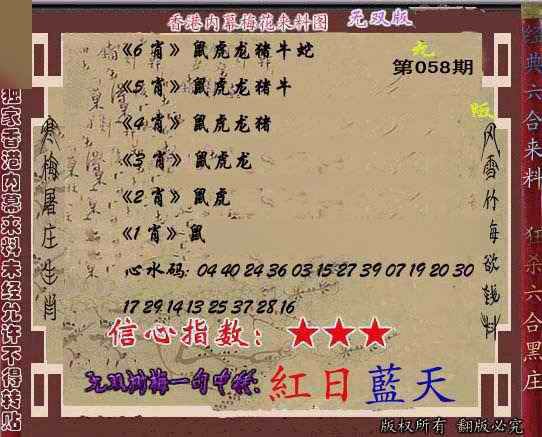 香港内幕梅花来料图 无双版
《6肖》鼠虎龙猪牛蛇
第058期
《5肖》鼠虎龙猪牛
《4肖》鼠虎龙猪
《3肖》鼠虎龙
《2肖》鼠虎
《1肖》鼠
心水码: 04 40 24 36 03 15 27 39 07 19 20 30
17 29 14 13 25 37 28 16
信心指数: ★★★
一句中特: 紅日藍天
版权所有 翻版必究
独家香港内幕来料未经允许不得转贴
寒梅屠庄生肖
经典六合来料
狂杀六合黑庄